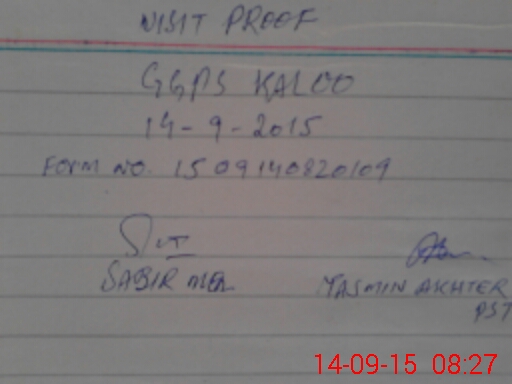 VISIT PROOF
GGPS KALOO
14-9-2015
FORM NO. 15 09140820109
SABIR MEA
YASMIN AKHTER
PST
14-09-15 08:27